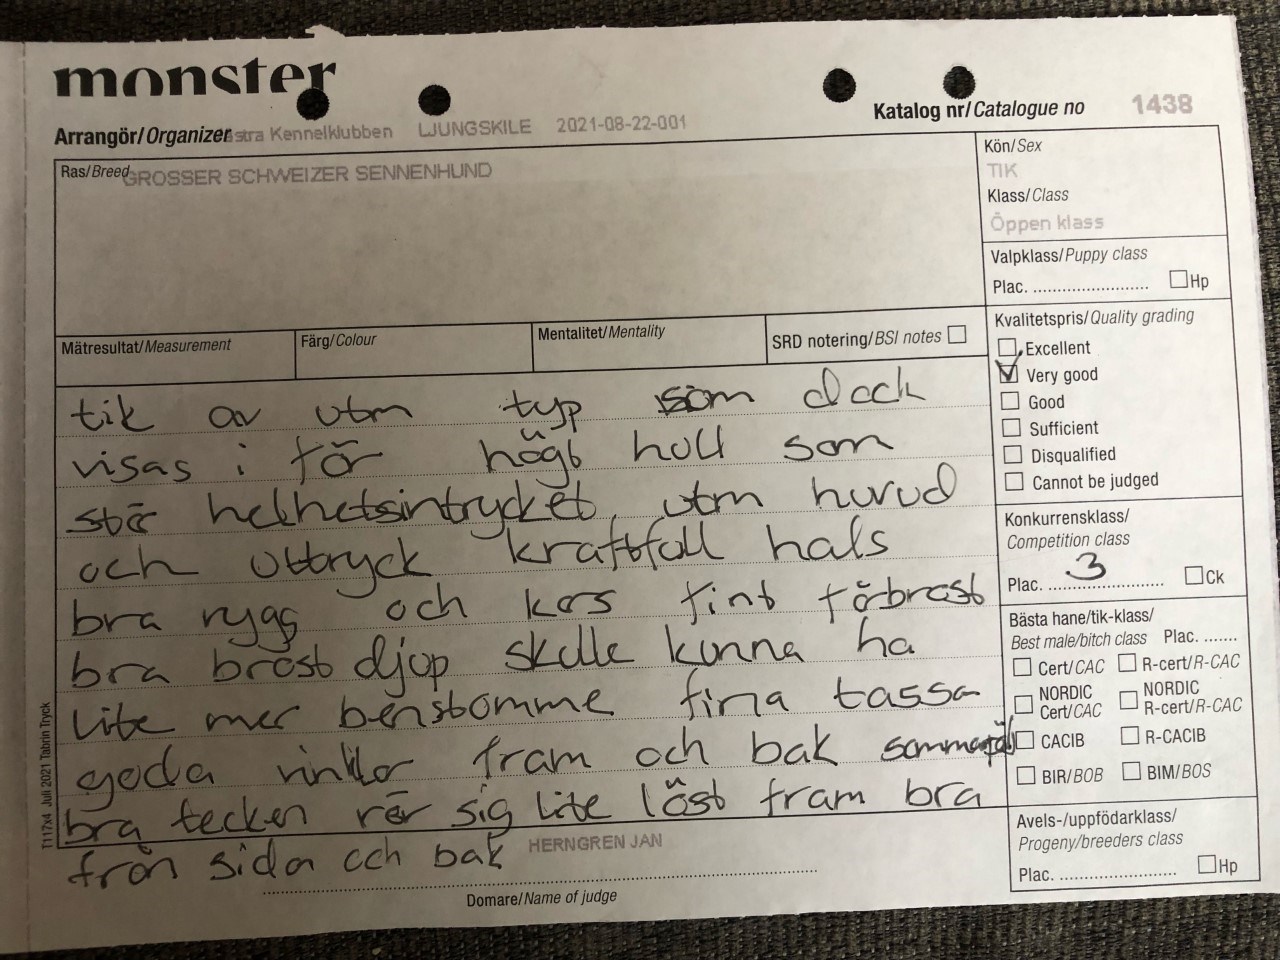 monster
Arrangör/Organizer stra Kennelklubben LJUNGSKILE 2021-08-22-001
Katalog nr/Catalogue no 1438
Ras/Breed GROSSER SCHWEIZER SENNENHUND
Kön/Sex
TIK
Klass/Class
Öppen klass
Valpklass/Puppy class
Plac. ........................ Hp
Mätresultat/Measurement
Färg/Colour
Mentalitet/Mentality
SRD notering/BSI notes
Kvalitetspris/Quality grading
Excellent
Very good
Good
Sufficient
Disqualified
Cannot be judged
tik av utm typ som dock
visas i för högt hull som
stör helhetsintrycket, utm huvud
och uttryck kraftfull hals
bra rygg och kors fint förbröst
bra bröst djup skulle kunna ha
lite mer benstomme fina tassa
goda vinklar fram och bak
bra tecken rör sig lite löst fram bra
från sida och bak
Konkurrensklass/
Competition class
Plac. 3 Ck
Bästa hane/tik-klass/
Best male/bitch class Plac. .......
Cert/CAC R-cert/R-CAC
NORDIC Cert/CAC NORDIC R-cert/R-CAC
CACIB R-CACIB
BIR/BOB BIM/BOS
Avels-/uppfödarklass/
Progeny/breeders class
Plac. ........................ Hp
HERNGREN JAN
Domare/Name of judge
T117x4 Juli 2021 Tabrin Tryck